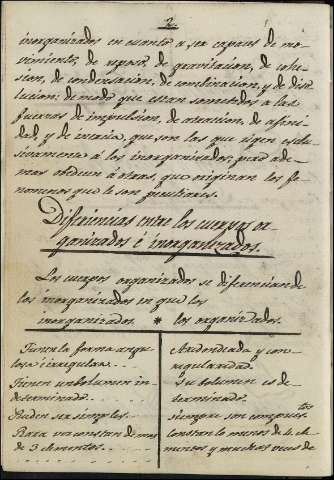 2
inorganizados en cuanto a ser capaces de mo-
vimiento, de reposo, de gravitacion, de cohe-
sion, de condensacion, de combinacion, y de diso-
lucion; de modo que estan sometidos a las
fuerzas de impulsion, de atraccion, de afini-
dad, y de inercia, que son las que rigen esclu-
sivamente á los inorganizados, pero ade-
mas obedecen á otras, que originan los fe-
nomenos que le son peculiares.
Diferencias entre los cuerpos or-
ganizados é inorganizados.
Los cuerpos organizados se diferencian de
los inorganizados en que los
inorganizados. * los organizados.
Tienen la forma angu-
losa é irregular . . .
Tienen un volumen in-
determinado . . .
Pueden ser simples . . .
Rara vez constan de mas
de 3 elementos . . .
Redondeada y con
regularidad.
Su volumen es de-
terminado.
siempre son compuestos
Constan lo menos de 4 ele-
mentos y muchas veces de